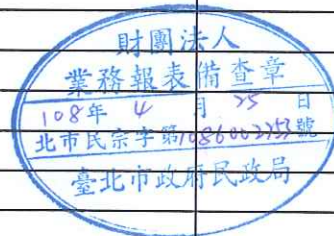 財團法人
業務報表備查章
108年 4 月 25 日
北市民宗字第1086002253號
臺北市政府民政局